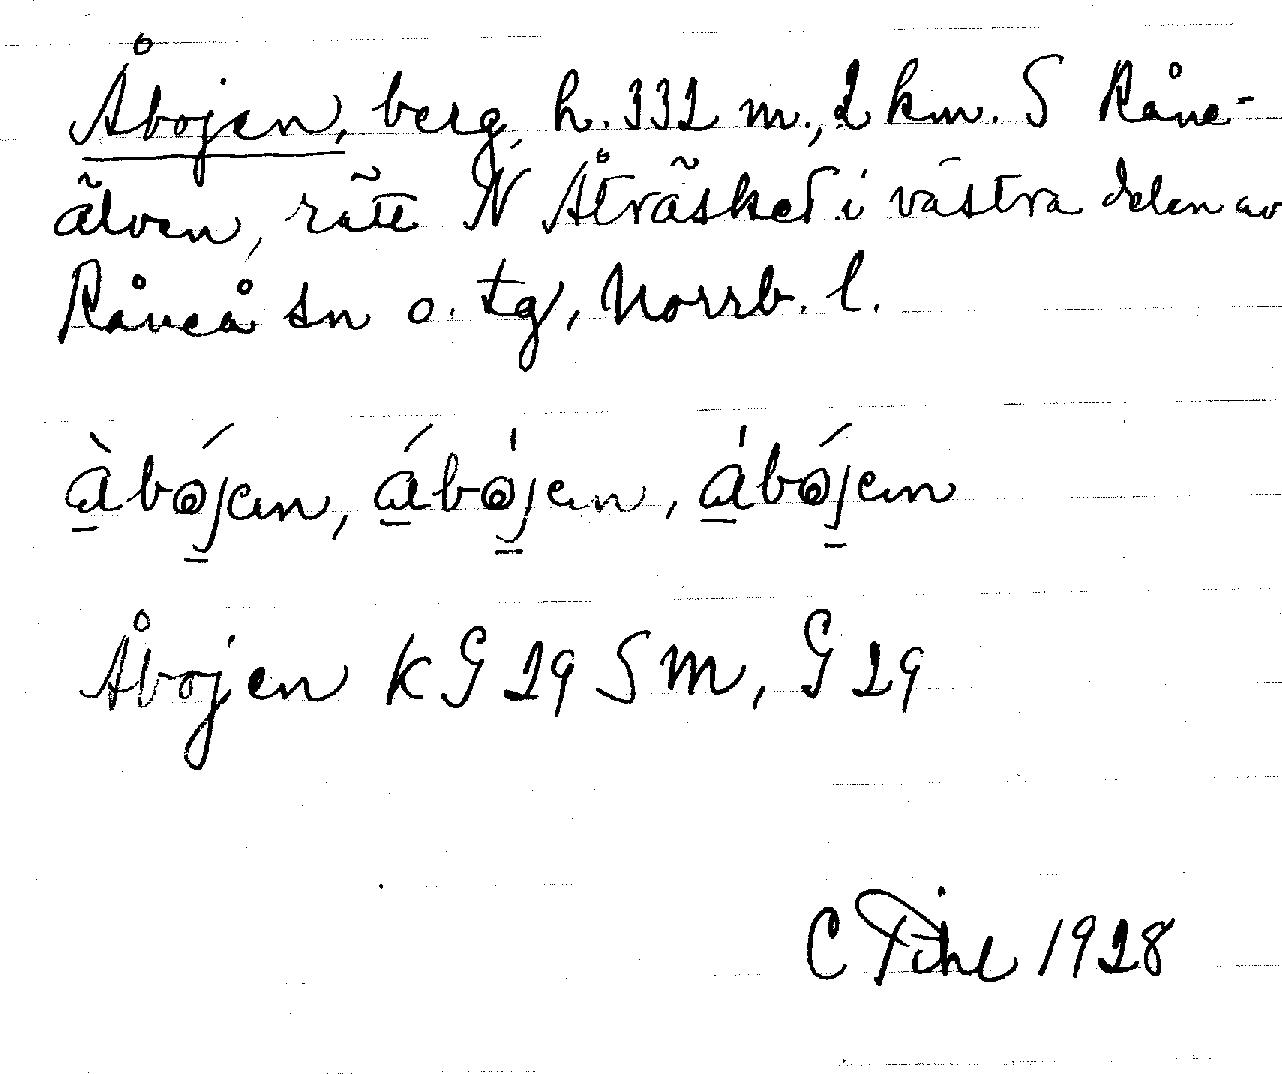 Åbojen, berg, h. 332 m., 2 km. S Råne-
älven, rätt N Åträsket i västra delen av
Råneå sn o. tg, Norrb. l.
Åbojen K G 29 S m, G 29
C Pihl 1928